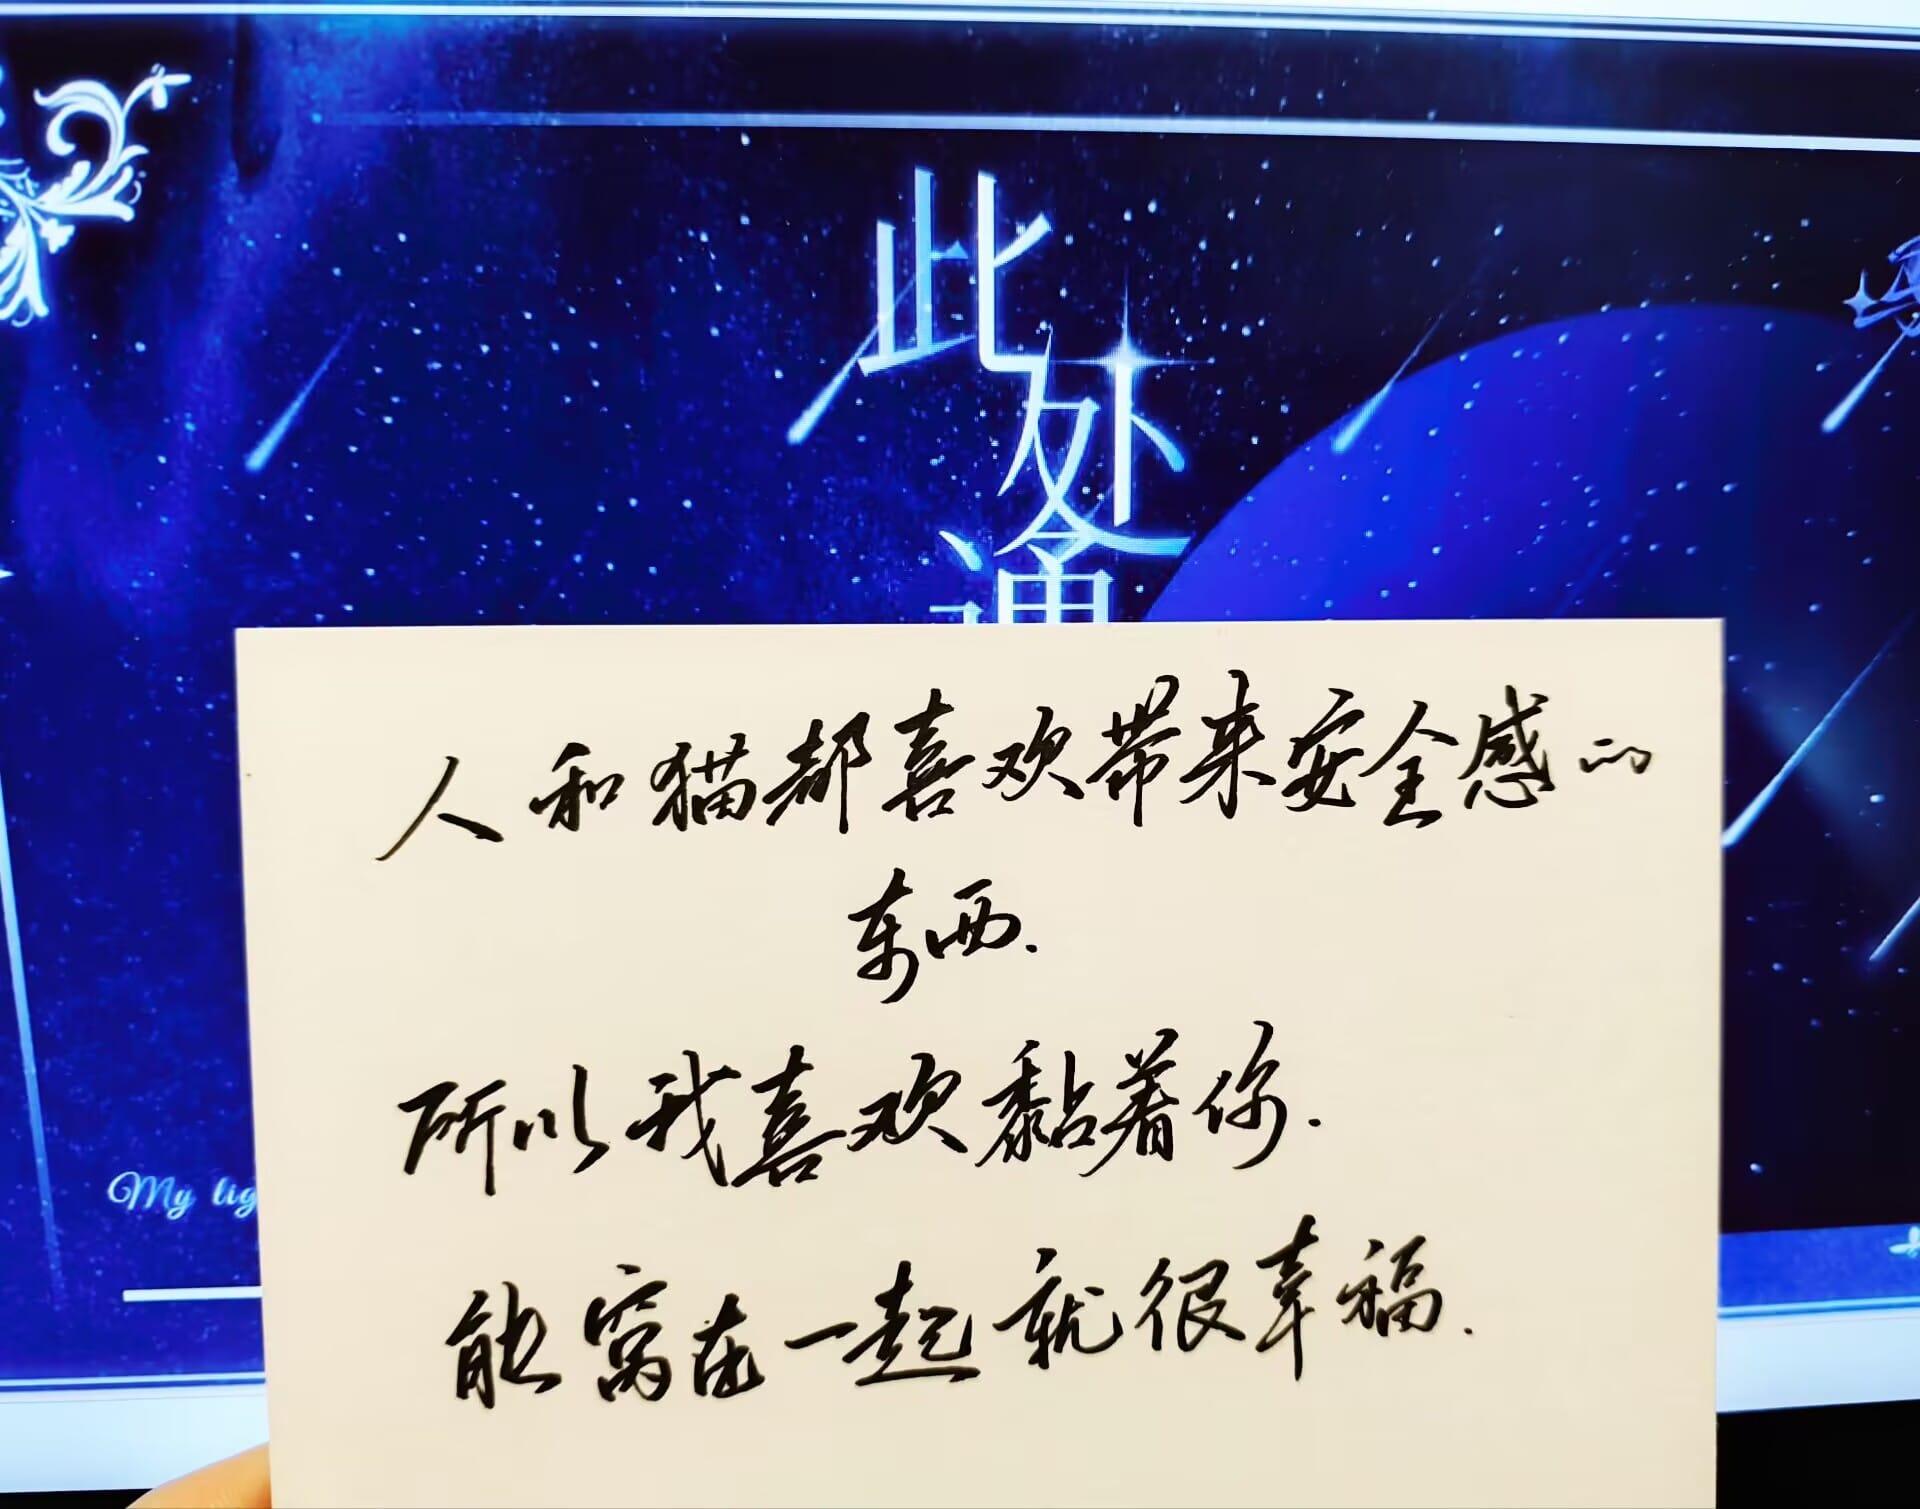 此处通
人和猫都喜欢带来安全感的
东西.
所以我喜欢黏着你.
能窝在一起就很幸福.
My lig